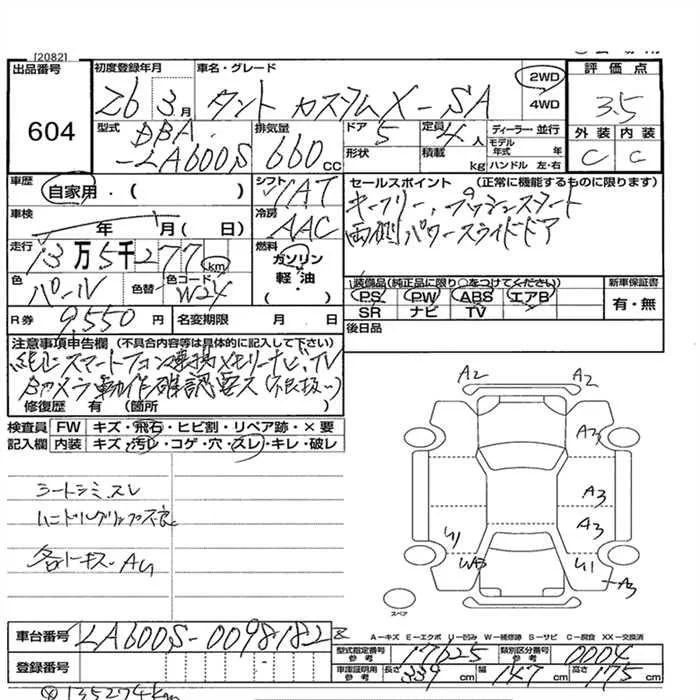 [2082]
出品番号
604
初度登録年月
26 3月
車名・グレード
タント カスタムX-SA
2WD
4WD
評価点
3.5
外装 内装
C C
型式
DBA
-LA600S
排気量
660 CC
ドア 5
形状
定員 4人
積載 kg
ディーラー・並行
モデル年式 年
ハンドル 左・右
車歴
自家用・( )
シフト
IAT
セールスポイント (正常に機能するものに限ります)
キーフリー、プッシュスタート
両側パワースライドドア
車検
年 月( 日)
冷房
AAC
走行
13万5千277 km
燃料
ガソリン
軽・油
・( )
色
パール
色替
色コード
W24
装備品(純正品に限り○をつけてください)
PS PW ABS エアB
SR ナビ TV
新車保証書
有・無
R券
9,550 円
名変期限 月 日
後日品
注意事項申告欄 (不具合内容等は具体的に記入して下さい)
純正スマートフォン連携メモリーナビ、TV
Bカメラ動作確認要ス(不良扱い)
修復歴 有 (箇所 )
検査員 FW キズ・飛石・ヒビ割・リペア跡・×要
記入欄 内装 キズ・汚レ・コゲ・穴・スレ・キレ・破レ
シートシミ、スレ
ハンドルグリップ不良
各ドキズ AU
A2 A2
A3
A3
A3
U1
W3 U1
A3
スペア
車台番号
LA600S-0098182
A-キズ E-エクボ U-凹み W-補修跡 S-サビ C-腐食 XX-交換済
型式指定番号 参考
17625
類別区分番号 参考
0004
登録番号
車庫証明用 参考
長さ 339 cm
幅 147 cm
高さ 175 cm
※135274km